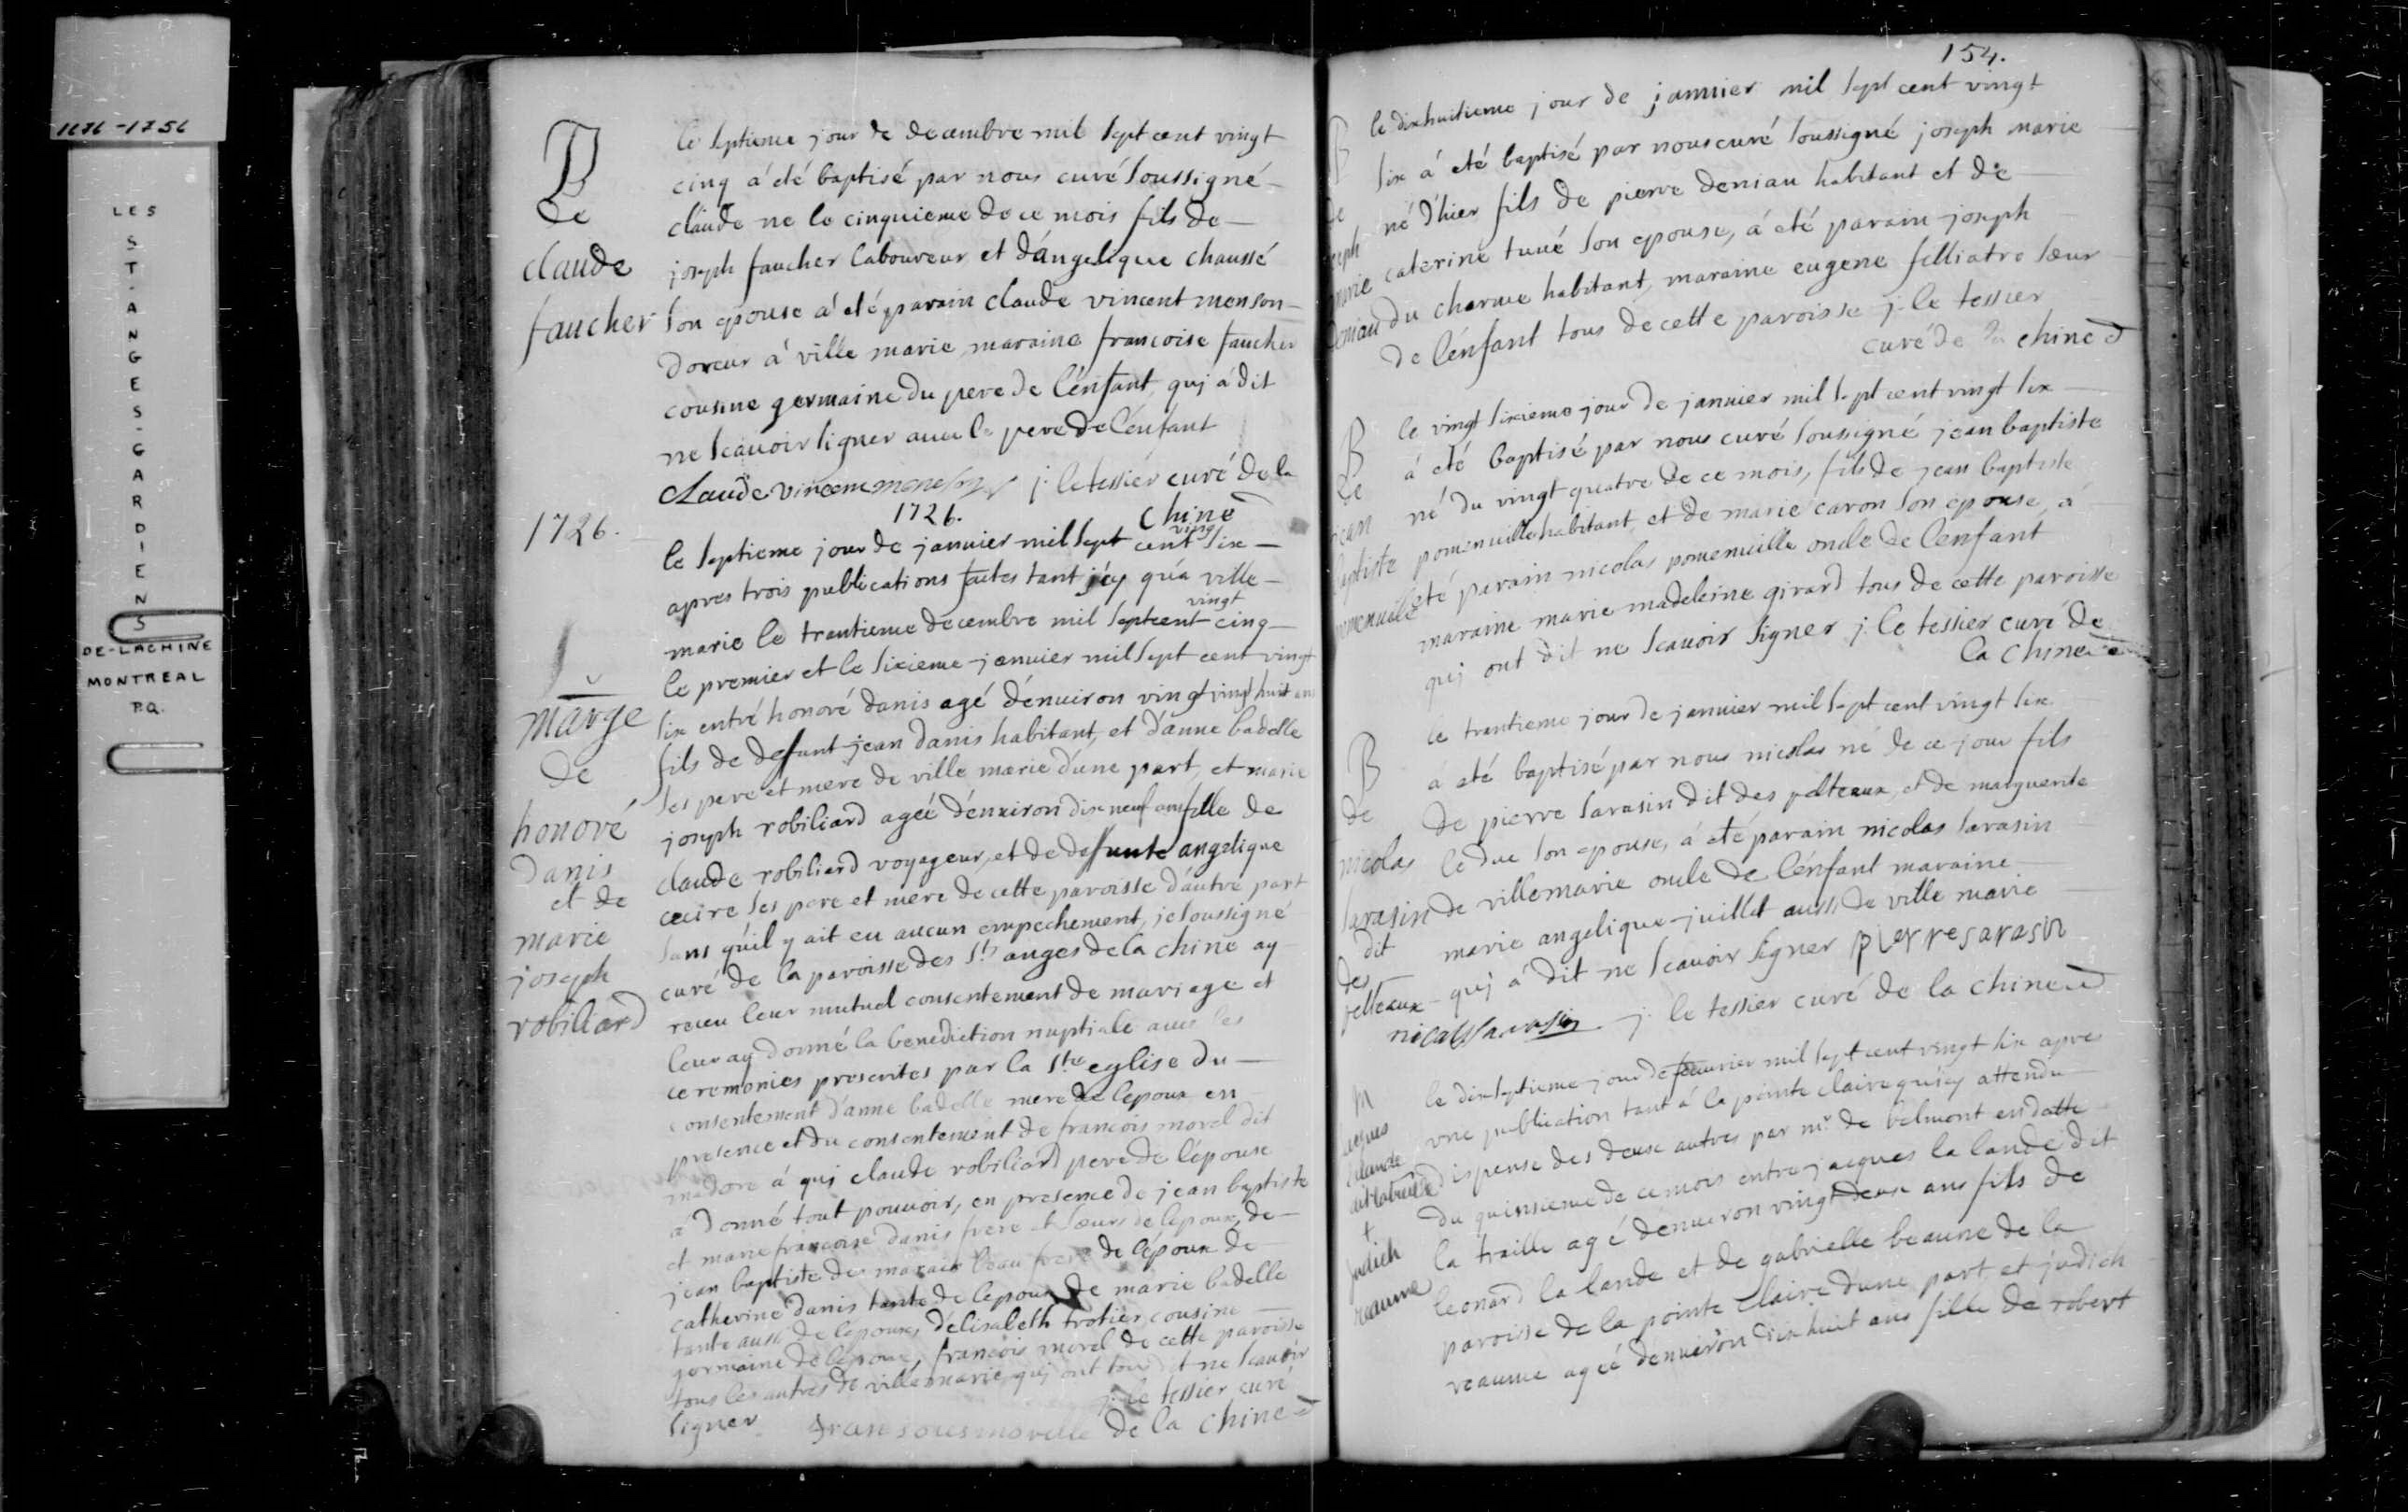 1676-1756
LES
ST-ANGES-GARDIENS
DE-LACHINE
MONTREAL
P.Q.
B
de
claude
faucher
le septieme jour de decembre mil sept cent vingt
cinq a été baptisé par nous curé soussigné
claude ne le cinquieme de ce mois fils de
joseph faucher laboureur et d'angelique chaussé
son epouse a eté parain claude vincent menson
doreur a ville marie, maraine francoise faucher
cousine germaine du pere de l'enfant, quj a dit
ne scauoir signer auec le pere de l'enfant
claude vincent j. le tessier curé de la
chine
1726.
1726.
le septieme jour de januier mil sept cent vingt six
apres trois publications faites tant jcy qu'a ville
marie le trantieme decembre mil sept cent vingt cinq
le premier et le sixieme januier mil sept cent vingt
six entre honoré danis agé d'enuiron vingt vingt huit ans
fils de defunt jean danis habitant, et d'anne badelle
ses pere et mere de ville marie d'une part, et marie
joseph robiliard ageé d'enuiron dix neuf ans fille de
claude robiliard voyageur, et de defunte angelique
cecire ses pere et mere de cette paroisse d'autre part
sans qu'il y ait eu aucun empechement, je soussigné
curé de la paroisse des Sts anges de la chine ay
receu leur mutuel consentement de mariage et
leur ay donné la benediction nuptiale auec les
ceremonies prescrites par la Ste eglise du
consentement d'anne badelle mere de l'epoux en
presence et du consentement de francois morel dit
madore à quj claude robiliard pere de l'épouse
a donné tout pouuoir, en presence de jean baptiste
et marie francoise danis frere et soeurs de l'epoux, de
jean baptiste des marais beau frere de l'époux de
catherine danis tante de l'epoux de marie badelle
tante aussi de l'epoux, d'elisabeth trotier cousine
germaine de l'epoux, francois morel de cette paroisse
tous les autres de ville marie, quj ont tous dit ne scauoir
signer j. le tessier curé
fransoues morelle de la chine
marge
de
honoré
danis
et de
marie
joseph
robiliard
154.
le dixhuitieme jour de januier mil sept cent vingt
six à eté baptisé par nous curé soussigné joseph marie
né d'hier fils de pierre deniau habitant et de
caterine tuué son epouse, à eté parain joseph
du charme habitant, maraine eugene filliatro soeur
de l'enfant tous de cette paroisse j. le tessier
curé de la chine
B
de
joseph
marie
deniau
le vingt sixieme jour de januier mil sept cent vingt six
à eté baptisé par nous curé soussigné jean baptiste
né du vingt quatre de ce mois, fils de jean baptiste
pomenuille habitant, et de marie caron son epouse, à
eté parain nicolas pomenuille oncle de l'enfant
maraine marie madeleine girard tous de cette paroisse
quj ont dit ne scauoir signer j. le tessier curé de
la chine
B
de
jean
baptiste
pomenuille
le trantieme jour de januier mil sept cent vingt six
à eté baptisé par nous nicolas né de ce jour fils
de pierre sarasin dit des pelteaux, et de marguerite
le duc son epouse, à eté parain nicolas sarasin
de ville marie oncle de l'enfant maraine
marie angelique juillet aussi de ville marie
quj à dit ne scauoir signer pierre sarasin
nicolas sarasin j. le tessier curé de la chine
B
de
nicolas
sarasin
dit
des
pelteaux
le dixseptieme jour de feurier mil sept cent vingt six apres
vne publication tant à la pointe claire qu'icy attendu
dispense des deux autres par mr de belmont en datte
du quinsieme de ce mois entre jacques la lande dit
la traille agé d'enuiron vingt deux ans fils de
leonard la lande et de gabrielle beaune de la
paroisse de la pointe claire d'une part et judich
reaume ageé d'enuiron dix huit ans fille de robert
M
jacques
lalande
dit latraille
+
judich
reaume